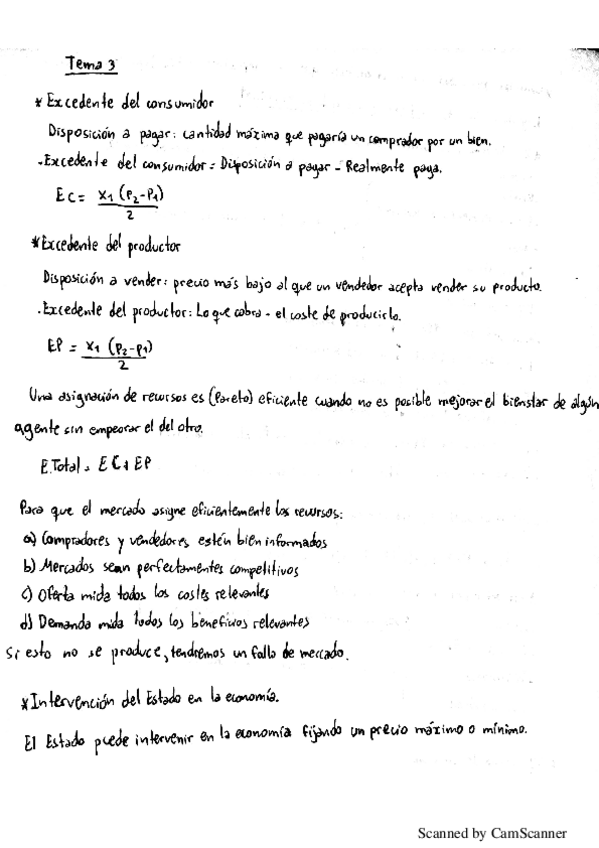 Tema 3
* Excedente del consumidor
Disposición a pagar: cantidad máxima que pagaría un comprador por un bien.
.Excedente del consumidor = Disposición a pagar - Realmente paga.
EC = x1 (P2-P1)
2
* Excedente del productor
Disposición a vender: precio más bajo al que un vendedor acepta vender su producto.
.Excedente del productor: Lo que cobra - el coste de producirlo.
EP = x1 (P2-P1)
2
Una asignación de recursos es (Pareto) eficiente cuando no es posible mejorar el bienstar de algún
agente sin empeorar el del otro.
E.Total = EC + EP
Para que el mercado asigne eficientemente los recursos:
a) Compradores y vendedores estén bien informados
b) Mercados sean perfectamentes competitivos
c) Oferta mida todos los costes relevantes
d) Demanda mida todos los beneficios relevantes
Si esto no se produce, tendremos un fallo de mercado.
* Intervención del Estado en la economía.
El Estado puede intervenir en la economía fijando un precio máximo o mínimo.
Scanned by CamScanner